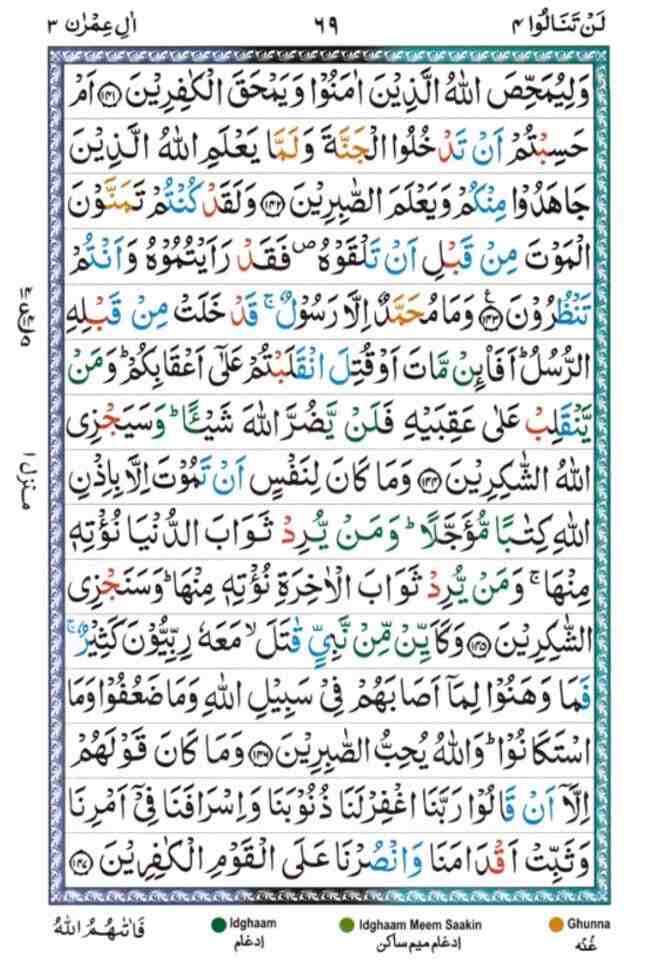 لَنْ تَنَالُوا ٤ ٦٩ اٰلِ عِمْرٰن ٣
وَلِيُمَحِّصَ اللّٰهُ الَّذِيْنَ اٰمَنُوْا وَيَمْحَقَ الْكٰفِرِيْنَ ﴿١٤١﴾ اَمْ
حَسِبْتُمْ اَنْ تَدْخُلُوا الْجَنَّةَ وَلَمَّا يَعْلَمِ اللّٰهُ الَّذِيْنَ
جَاهَدُوْا مِنْكُمْ وَيَعْلَمَ الصّٰبِرِيْنَ ﴿١٤٢﴾ وَلَقَدْ كُنْتُمْ تَمَنَّوْنَ
الْمَوْتَ مِنْ قَبْلِ اَنْ تَلْقَوْهُ ۖ فَقَدْ رَاَيْتُمُوْهُ وَاَنْتُمْ
تَنْظُرُوْنَ ﴿١٤٣﴾ ع وَمَا مُحَمَّدٌ اِلَّا رَسُوْلٌ ۚ قَدْ خَلَتْ مِنْ قَبْلِهِ
الرُّسُلُ ؕ اَفَا۟ئِنْ مَّاتَ اَوْ قُتِلَ انْقَلَبْتُمْ عَلٰٓى اَعْقَابِكُمْ ؕ وَمَنْ
يَّنْقَلِبْ عَلٰى عَقِبَيْهِ فَلَنْ يَّضُرَّ اللّٰهَ شَيْـًٔا ؕ وَسَيَجْزِى
اللّٰهُ الشّٰكِرِيْنَ ﴿١٤٤﴾ وَمَا كَانَ لِنَفْسٍ اَنْ تَمُوْتَ اِلَّا بِاِذْنِ
اللّٰهِ كِتٰبًا مُّؤَجَّلًا ؕ وَمَنْ يُّرِدْ ثَوَابَ الدُّنْيَا نُؤْتِهٖ
مِنْهَا ۚ وَمَنْ يُّرِدْ ثَوَابَ الْاٰخِرَةِ نُؤْتِهٖ مِنْهَا ؕ وَسَنَجْزِى
الشّٰكِرِيْنَ ﴿١٤٥﴾ وَكَاَيِّنْ مِّنْ نَّبِيٍّ قٰتَلَ ۙ مَعَهٗ رِبِّيُّوْنَ كَثِيْرٌ ۚ
فَمَا وَهَنُوْا لِمَاۤ اَصَابَهُمْ فِيْ سَبِيْلِ اللّٰهِ وَمَا ضَعُفُوْا وَمَا
اسْتَكَانُوْا ؕ وَاللّٰهُ يُحِبُّ الصّٰبِرِيْنَ ﴿١٤٦﴾ وَمَا كَانَ قَوْلَهُمْ
اِلَّاۤ اَنْ قَالُوْا رَبَّنَا اغْفِرْ لَنَا ذُنُوْبَنَا وَاِسْرَافَنَا فِيْۤ اَمْرِنَا
وَثَبِّتْ اَقْدَامَنَا وَانْصُرْنَا عَلَى الْقَوْمِ الْكٰفِرِيْنَ ﴿١٤٧﴾
منزل ١
فَاٰتٰىهُمُ اللّٰهُ
Idghaam
ادغام
Idghaam Meem Saakin
ادغام میم ساکن
Ghunna
غُنّه